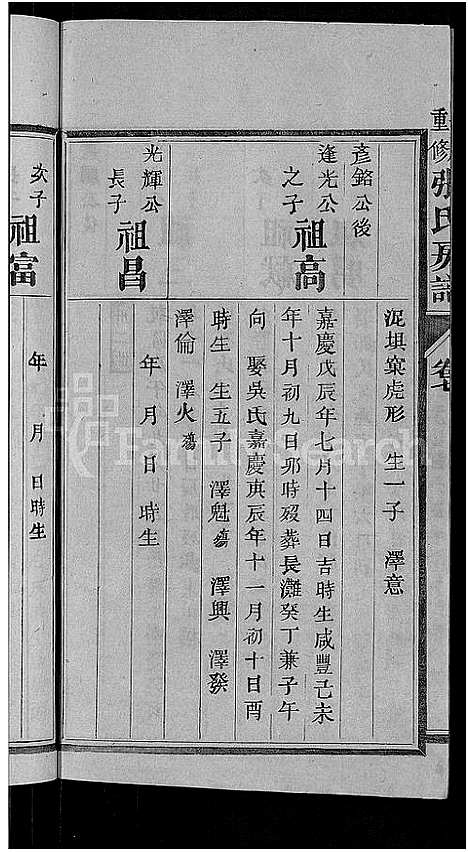 重修張氏房譜
卷
坭埧窠虎形 生一子 澤意
彥銘公後
逢光公
之子
祖高
嘉慶戊辰年七月十四日吉時生咸豐己未
年十月初九日卯時殁葬長灘癸丁兼子午
向 娶吳氏嘉慶庚辰年十一月初十日酉
時生 生五子 澤魁殤 澤興 澤發
澤倫 澤火殤
光輝公
長子
祖昌
年 月 日 時生
次子
祖富
年 月 日時生
FamilySearch